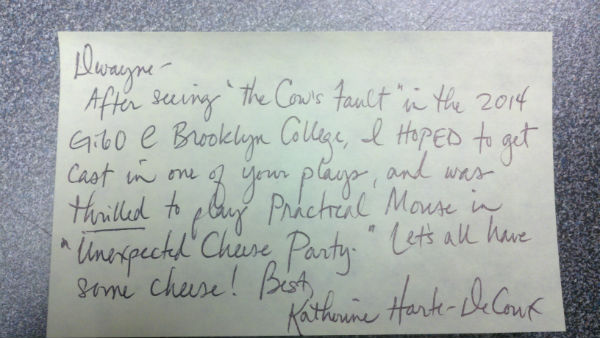 Dwayne-
After seeing "the Cow's Fault" in the 2014
Gi60 @ Brooklyn College, I HOPED to get
cast in one of your plays, and was
thrilled to play Practical Mouse in
"Unexpected Cheese Party." Let's all have
some cheese! Best,
Katherine Harte-DeCoux